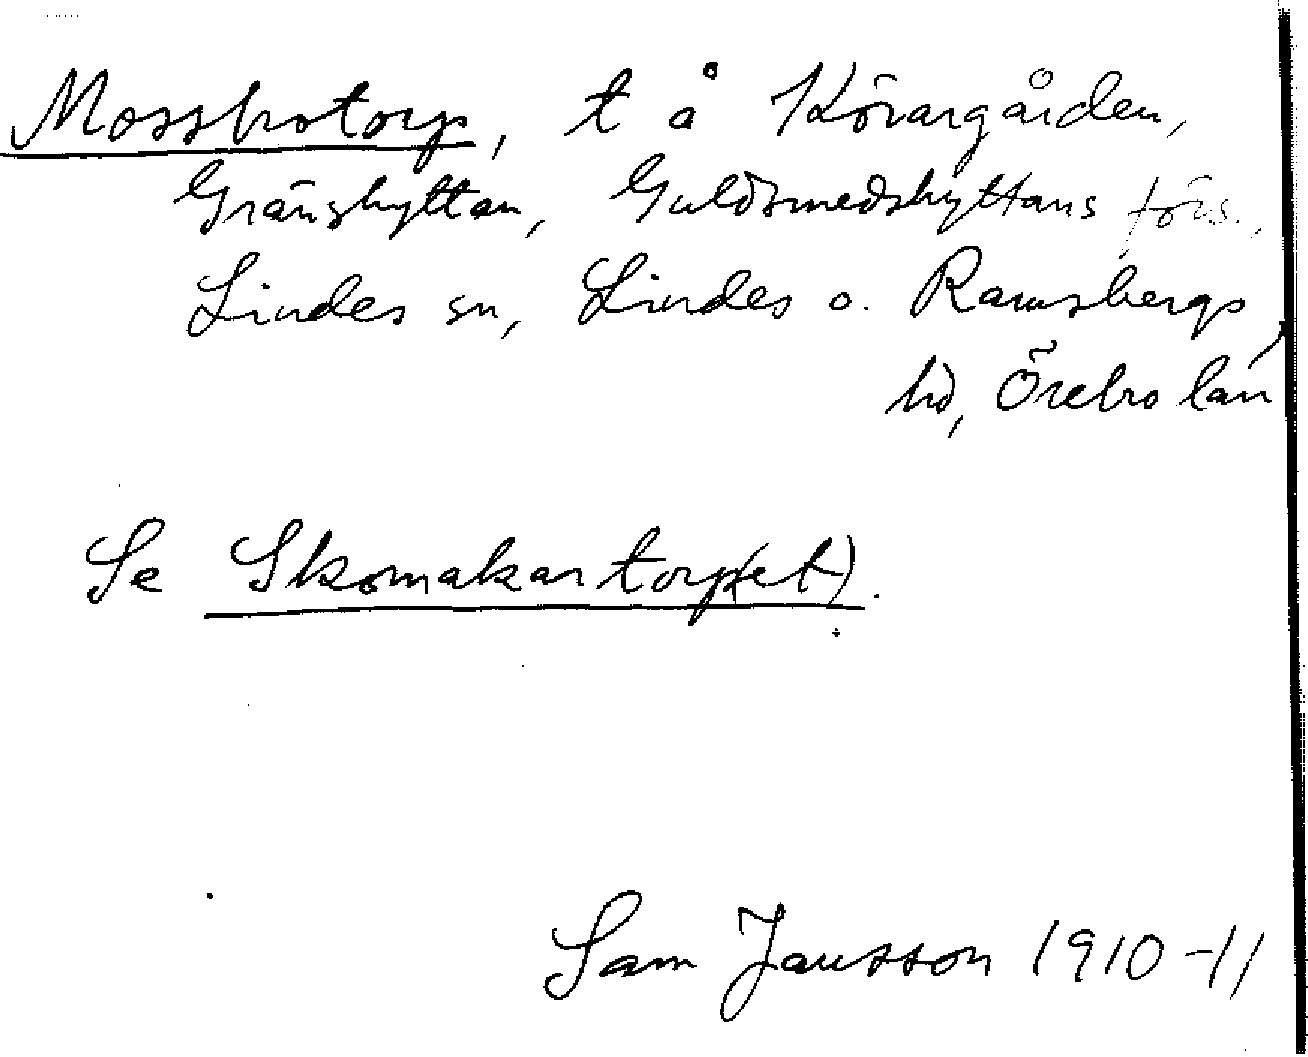 Mossbotorp, t å Körargården,
Gränshyttan, Guldsmedshyttans förs.,
Lindes sn, Lindes o. Ramsbergs
hd, Örebro län
Se Skomakartorp(et).
Sam Jansson 1910-11